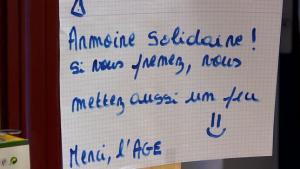 Armoire solidaire !
si vous prenez, vous
mettez aussi un peu
Merci, l'AGE